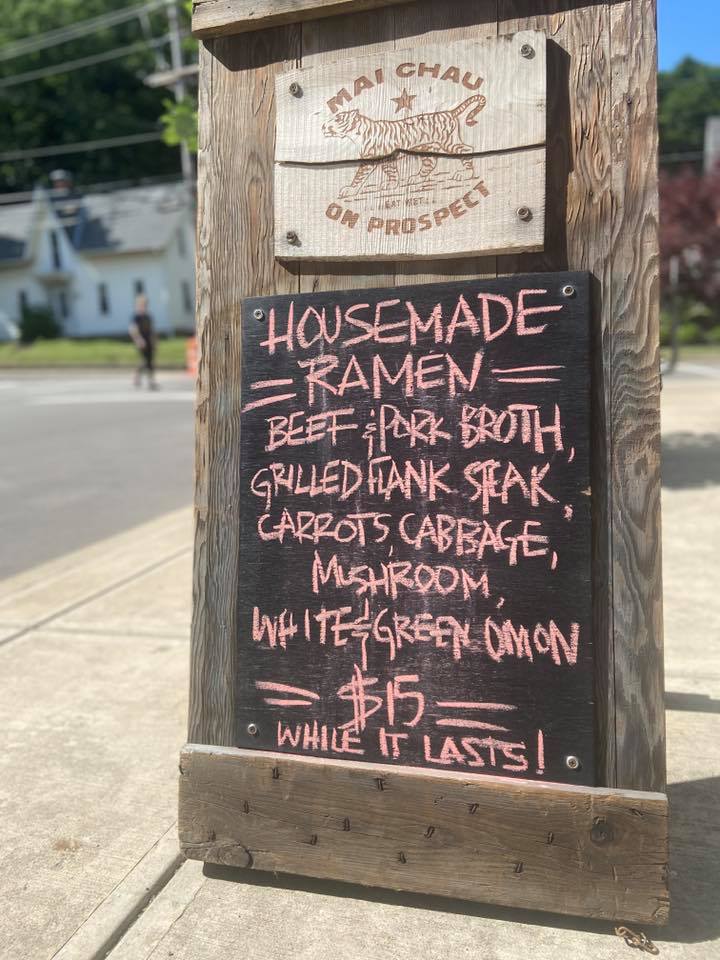 MAI CHAU
ON PROSPECT
HOUSEMADE
RAMEN
BEEF & PORK BROTH,
GRILLED FLANK STEAK,
CARROTS, CABBAGE,
MUSHROOM,
WHITE & GREEN ONION
$15
WHILE IT LASTS!